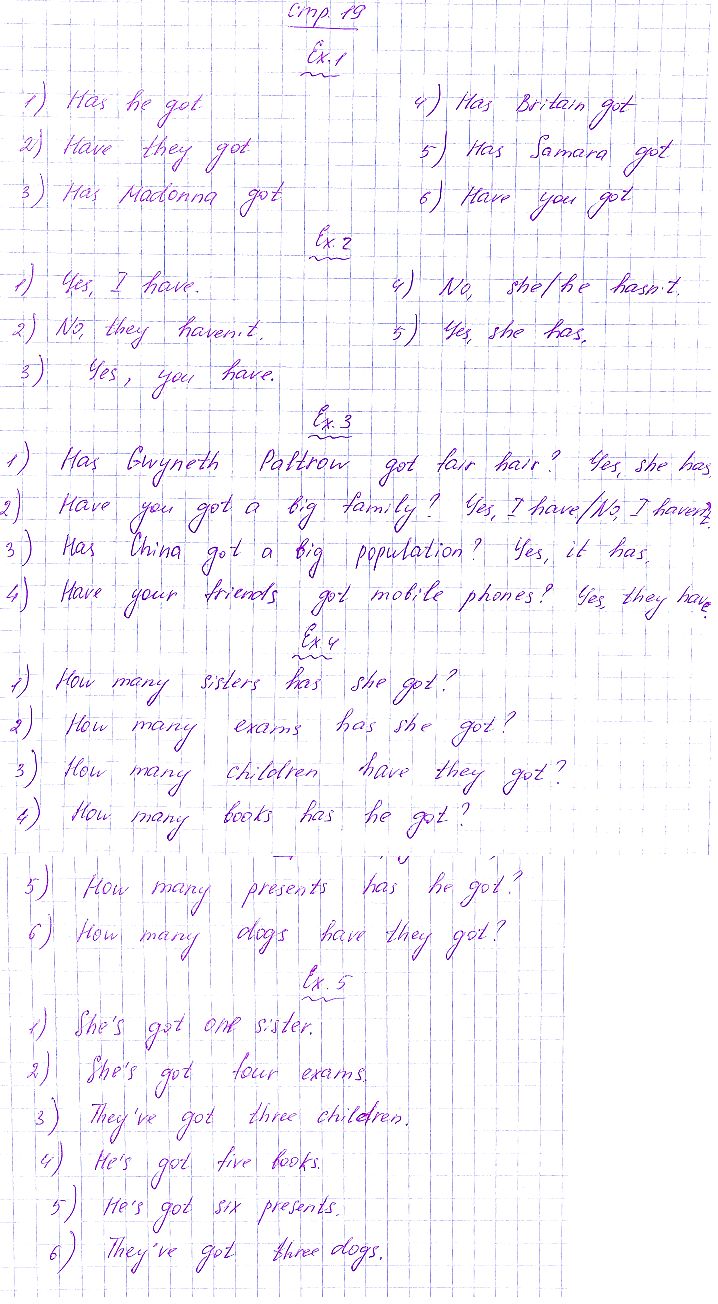 стр. 19
Ex.1
1) Has he got
2) Have they got
3) Has Madonna got
4) Has Britain got
5) Has Samara got
6) Have you got
Ex.2
1) Yes, I have.
2) No, they haven't.
3) Yes, you have.
4) No, she/he hasn't.
5) Yes, she has.
Ex.3
1) Has Gwyneth Paltrow got fair hair? Yes, she has.
2) Have you got a big family? Yes, I have/No, I haven't.
3) Has China got a big population? Yes, it has.
4) Have your friends got mobile phones? Yes, they have.
Ex.4
1) How many sisters has she got?
2) How many exams has she got?
3) How many children have they got?
4) How many books has he got?
5) How many presents has he got?
6) How many dogs have they got?
Ex.5
1) She's got one sister.
2) She's got four exams.
3) They've got three children.
4) He's got five books.
5) He's got six presents.
6) They've got three dogs.